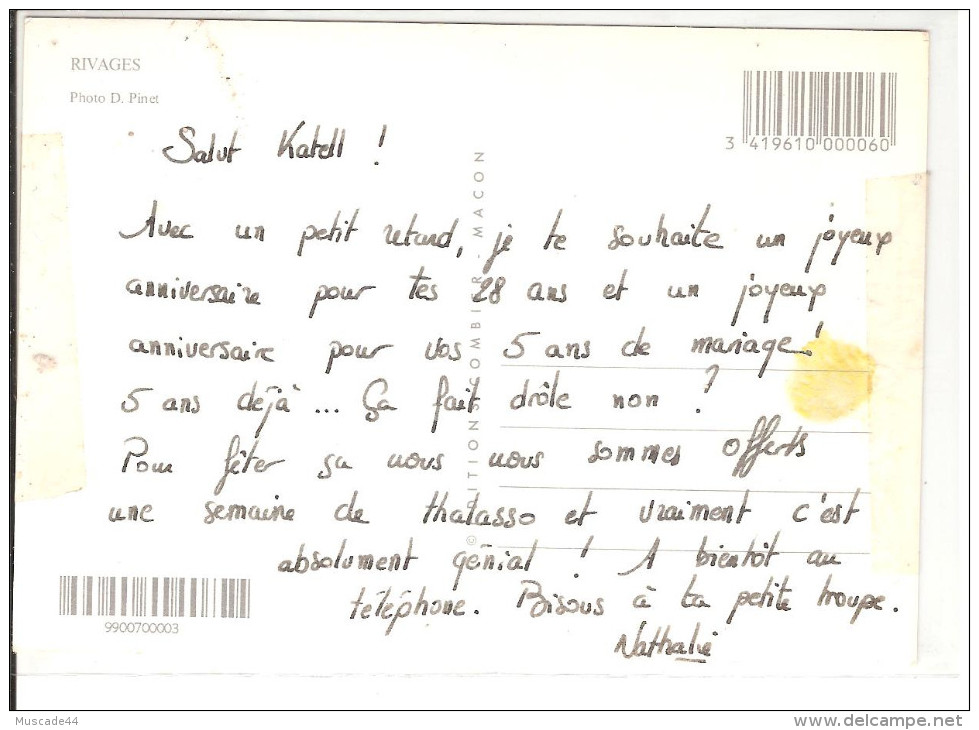 RIVAGES
Photo D. Pinet
3 419610 000060
Salut Katell !
Avec un petit retard, je te souhaite un joyeux
anniversaire pour tes 28 ans et un joyeux
anniversaire pour vos 5 ans de mariage !
5 ans déjà ... Ça fait drôle non ?
Pour fêter ça nous nous sommes offerts
une semaine de thalasso et vraiment c'est
absolument génial ! A bientôt au
téléphone. Bisous à ta petite troupe.
Nathalie
© EDITIONS COMBIER - MACON
9900700003
Muscade44
www.delcampe.net